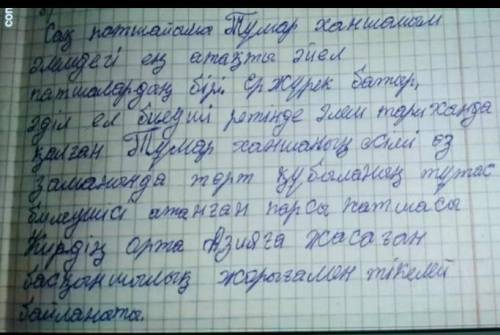 Сақ патшайыма Тумар ханшаның
әлемдегі ең атақты әйел
патшалардаң бірі. Ержүрек батыр,
әділ ел билеуші ретінде әлем тарихында
қалған Тумар ханшаның есімі өз
заманында төрт құбыланың тұтас
билеушісі атанған парсы патшасы
Кирдің Орта Азияға жасаған
басқыншылық жорығымен тікелей
байланыты.
con